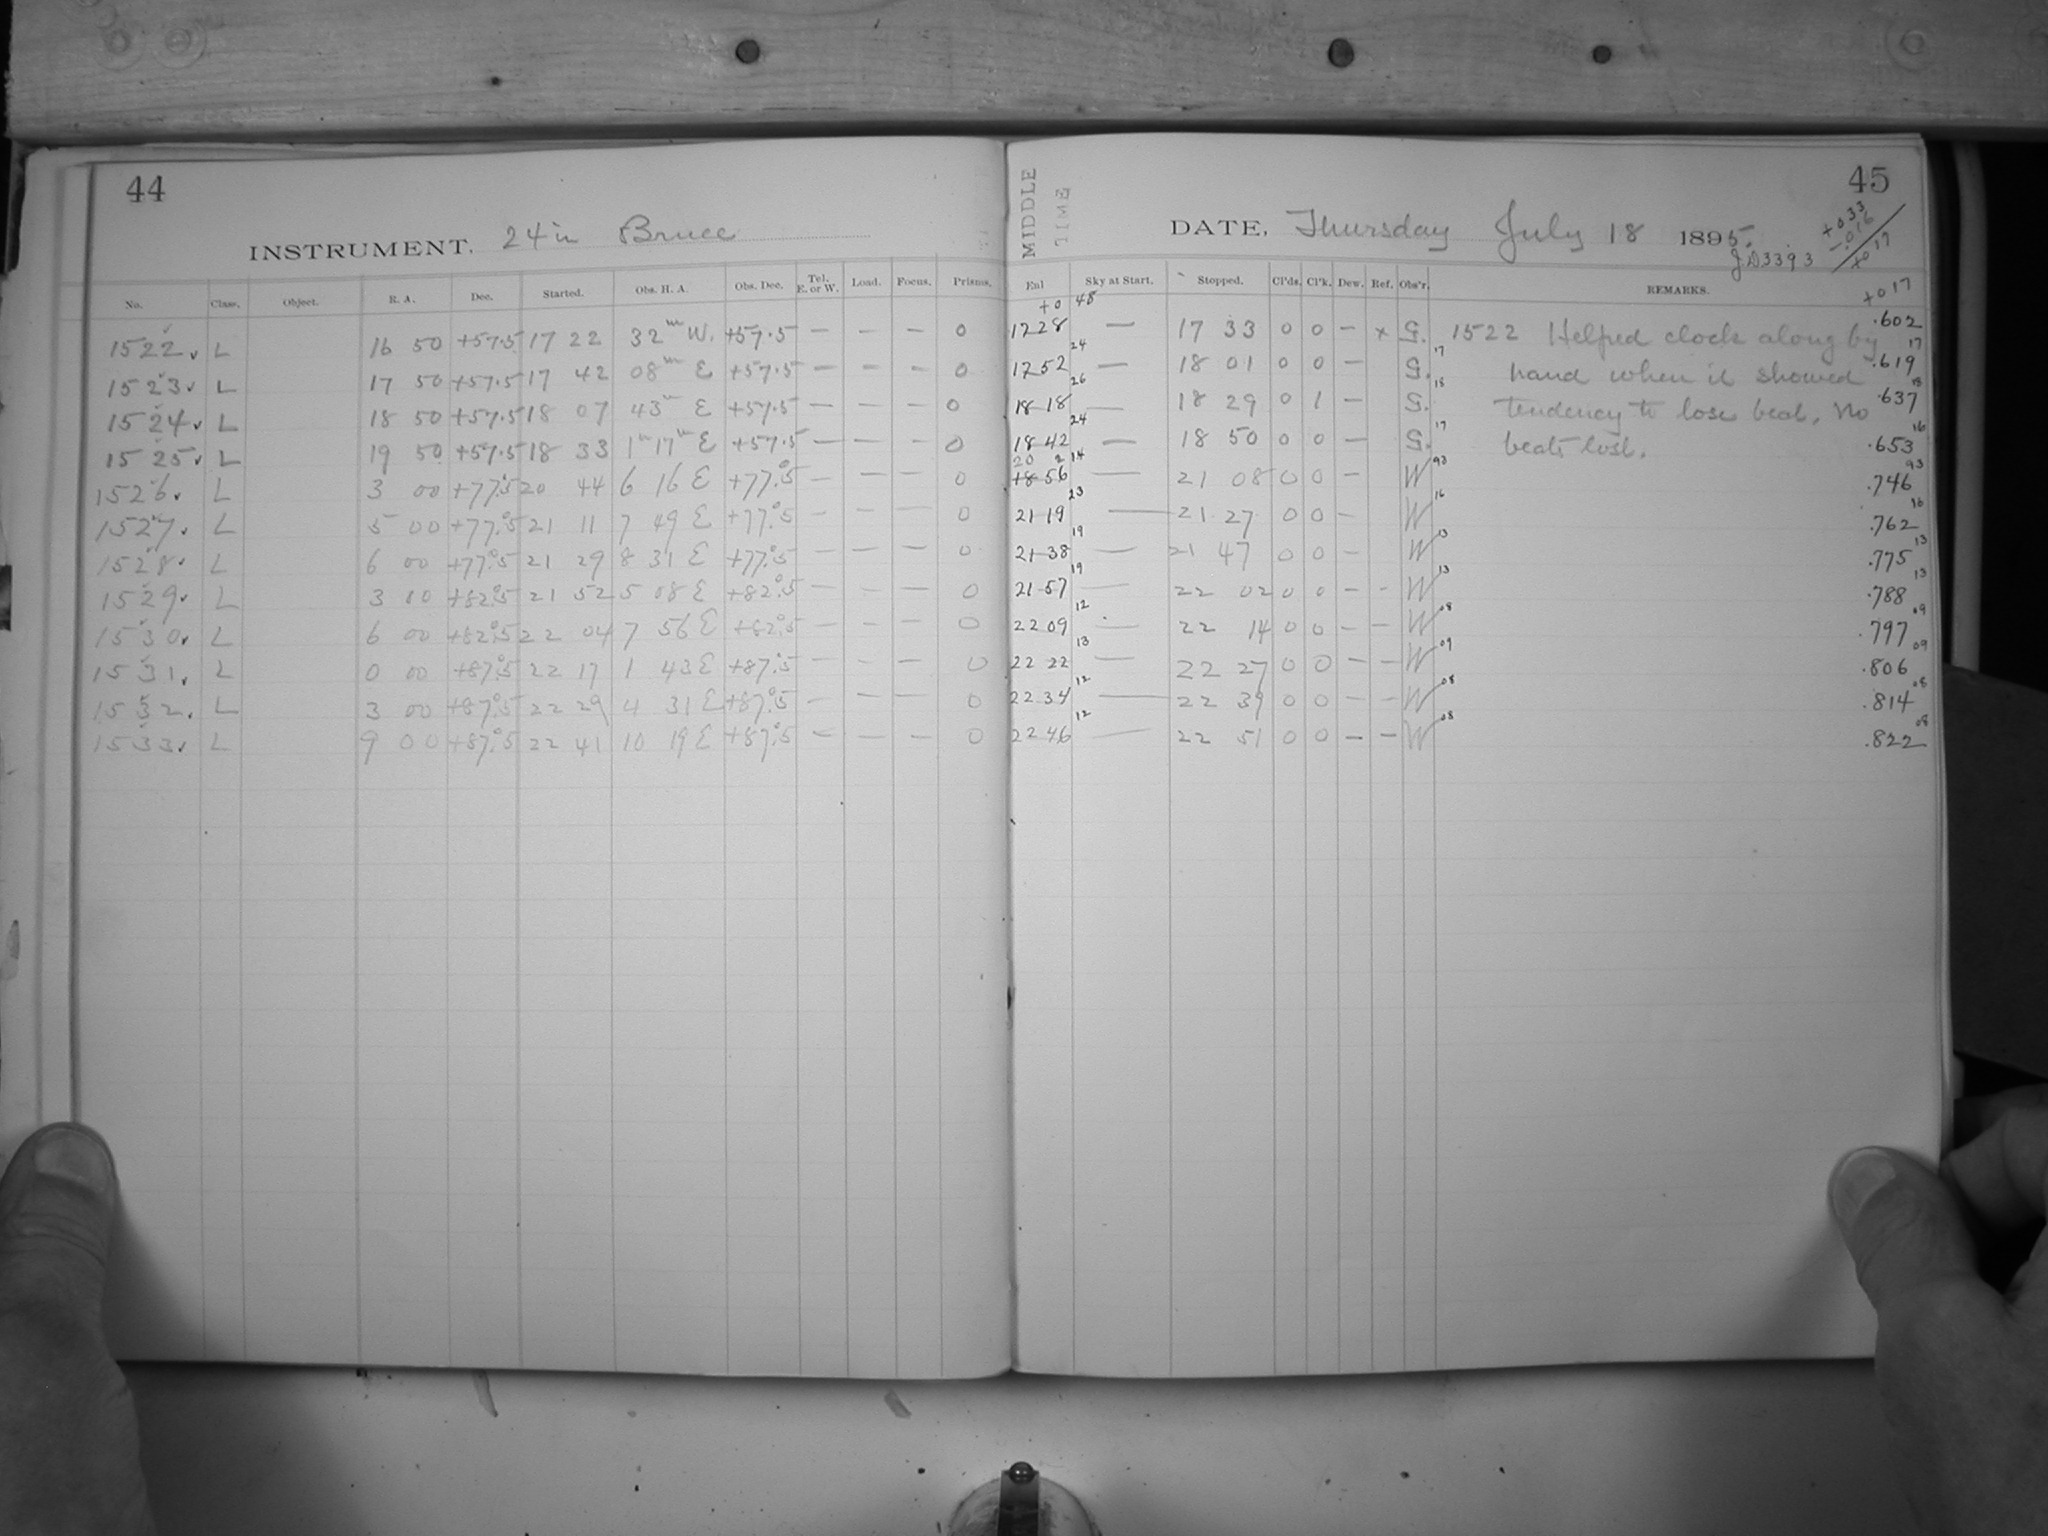 44
INSTRUMENT. 24 in Bruce
No. Class. Object. R. A. Dec. Started. Obs. H. A. Obs. Dec. Tel. E. or W. Load. Focus. Prisms.
1522 L 16 50 +57.5 17 22 32m W. +57.5 — — — 0
1523 L 17 50 +57.5 17 42 08m E +57.5 — — — 0
1524 L 18 50 +57.5 18 07 43m E +57.5 — — — 0
1525 L 19 50 +57.5 18 33 1h 17m E +57.5 — — — 0
1526 L 3 00 +77°.5 20 44 6 16 E +77°.5 — — — 0
1527 L 5 00 +77°.5 21 11 7 49 E +77°.5 — — — 0
1528 L 6 00 +77°.5 21 29 8 31 E +77°.5 — — — 0
1529 L 3 00 +82°.5 21 52 5 08 E +82°.5 — — — 0
1530 L 6 00 +82°.5 22 04 7 56 E +82°.5 — — — 0
1531 L 0 00 +87°.5 22 17 1 43 E +87°.5 — — — 0
1532 L 3 00 +87°.5 22 29 4 31 E +87°.5 — — — 0
1533 L 9 00 +87°.5 22 41 10 19 E +87°.5 — — — 0
45
MIDDLE TIME
DATE, Thursday July 18 1895.
J.D 3393
+033
-.016
+017
End Sky at Start. Stopped. Cl'ds. Cl'k. Dew. Ref. Obs'r. REMARKS.
+0 48 +017
17 28 — 17 33 0 0 — x S. 1522 Helped clock along by .602
24 17 17
17 52 — 18 01 0 0 — S. hand when it showed .619
26 18 18
18 18 — 18 29 0 1 — S. tendency to lose beat. No .637
24 17 16
18 42 — 18 50 0 0 — S. beats lost. .653
20 2 14 93 93
18 56 — 21 08 0 0 — W .746
23 16 16
21 19 — 21 27 0 0 — W .762
19 13 13
21 38 — 21 47 0 0 — W .775
19 13 13
21 57 — 22 02 0 0 — - W .788
12 08 09
22 09 — 22 14 0 0 — — W .797
13 09 09
22 22 — 22 27 0 0 — — W .806
12 08 08
22 34 — 22 39 0 0 — — W .814
12 08 08
22 46 — 22 51 0 0 — — W .822